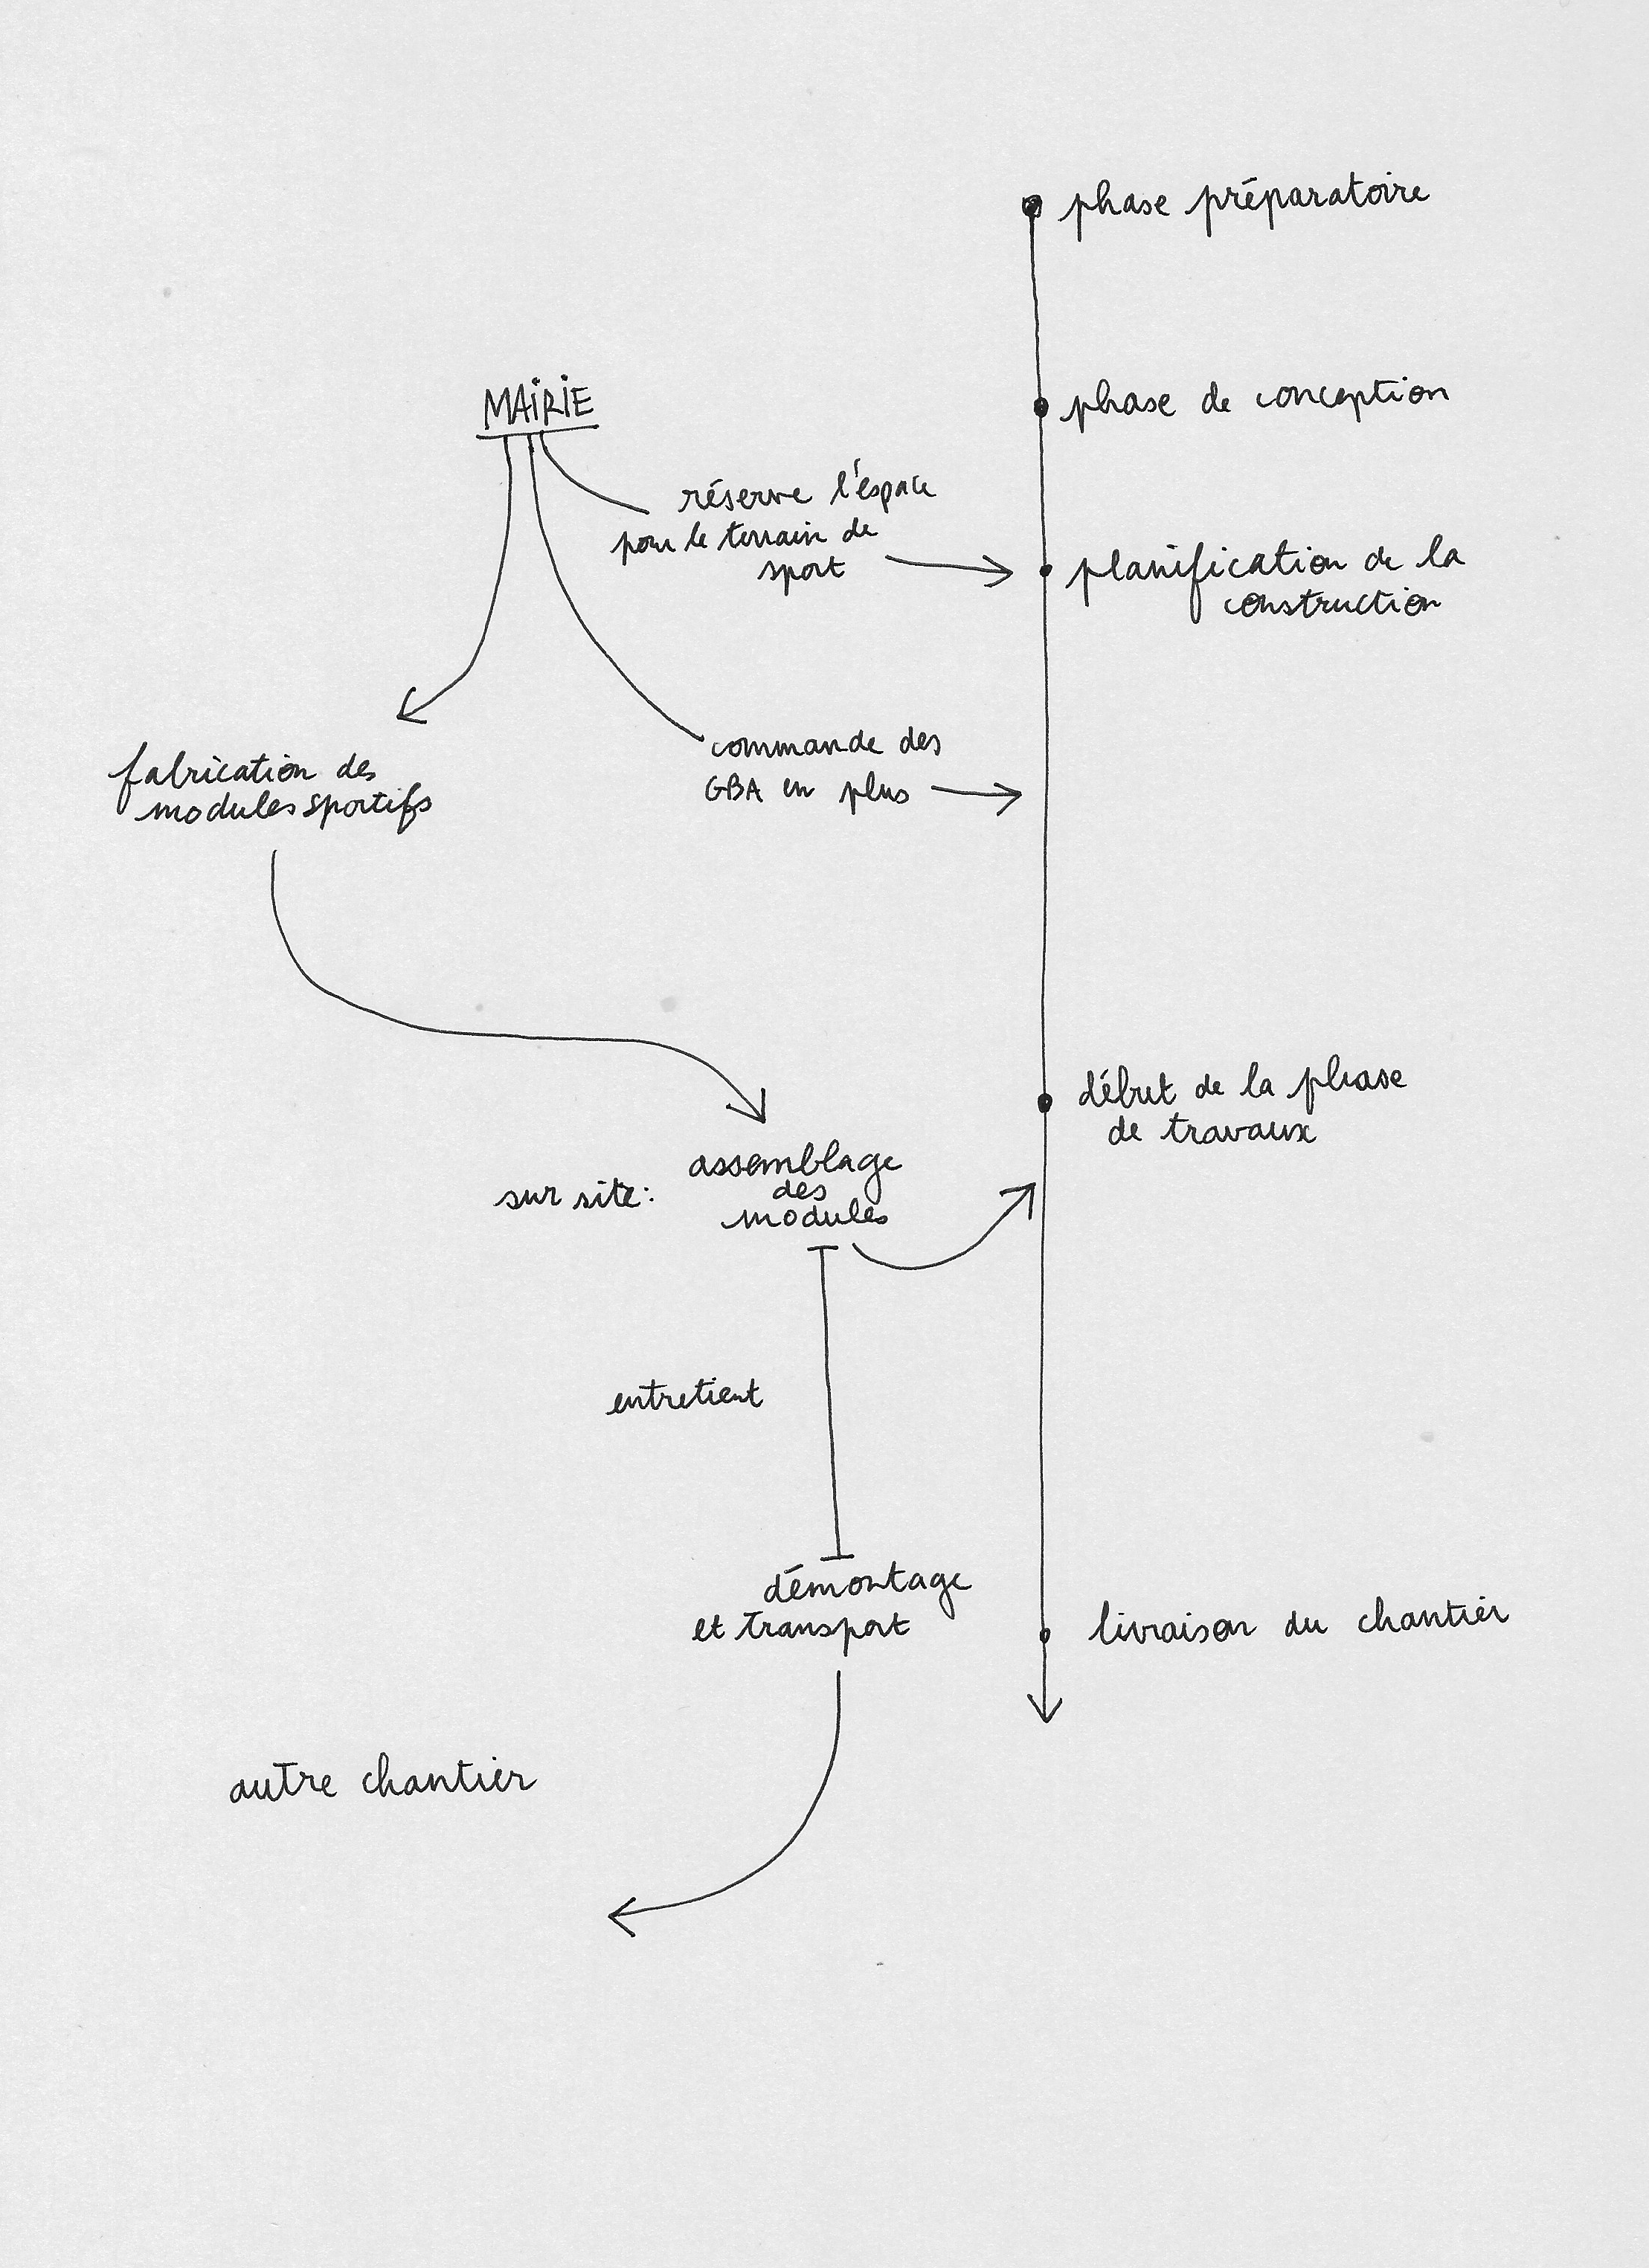 phase préparatoire
phase de conception
MAiRiE
réserve l'espace
pour le terrain de
sport
planification de la
construction
fabrication des
modules sportifs
commande des
GBA en plus
début de la phase
de travaux
sur site:
assemblage
des
modules
entretient
démontage
et transport
livraison du chantier
autre chantier